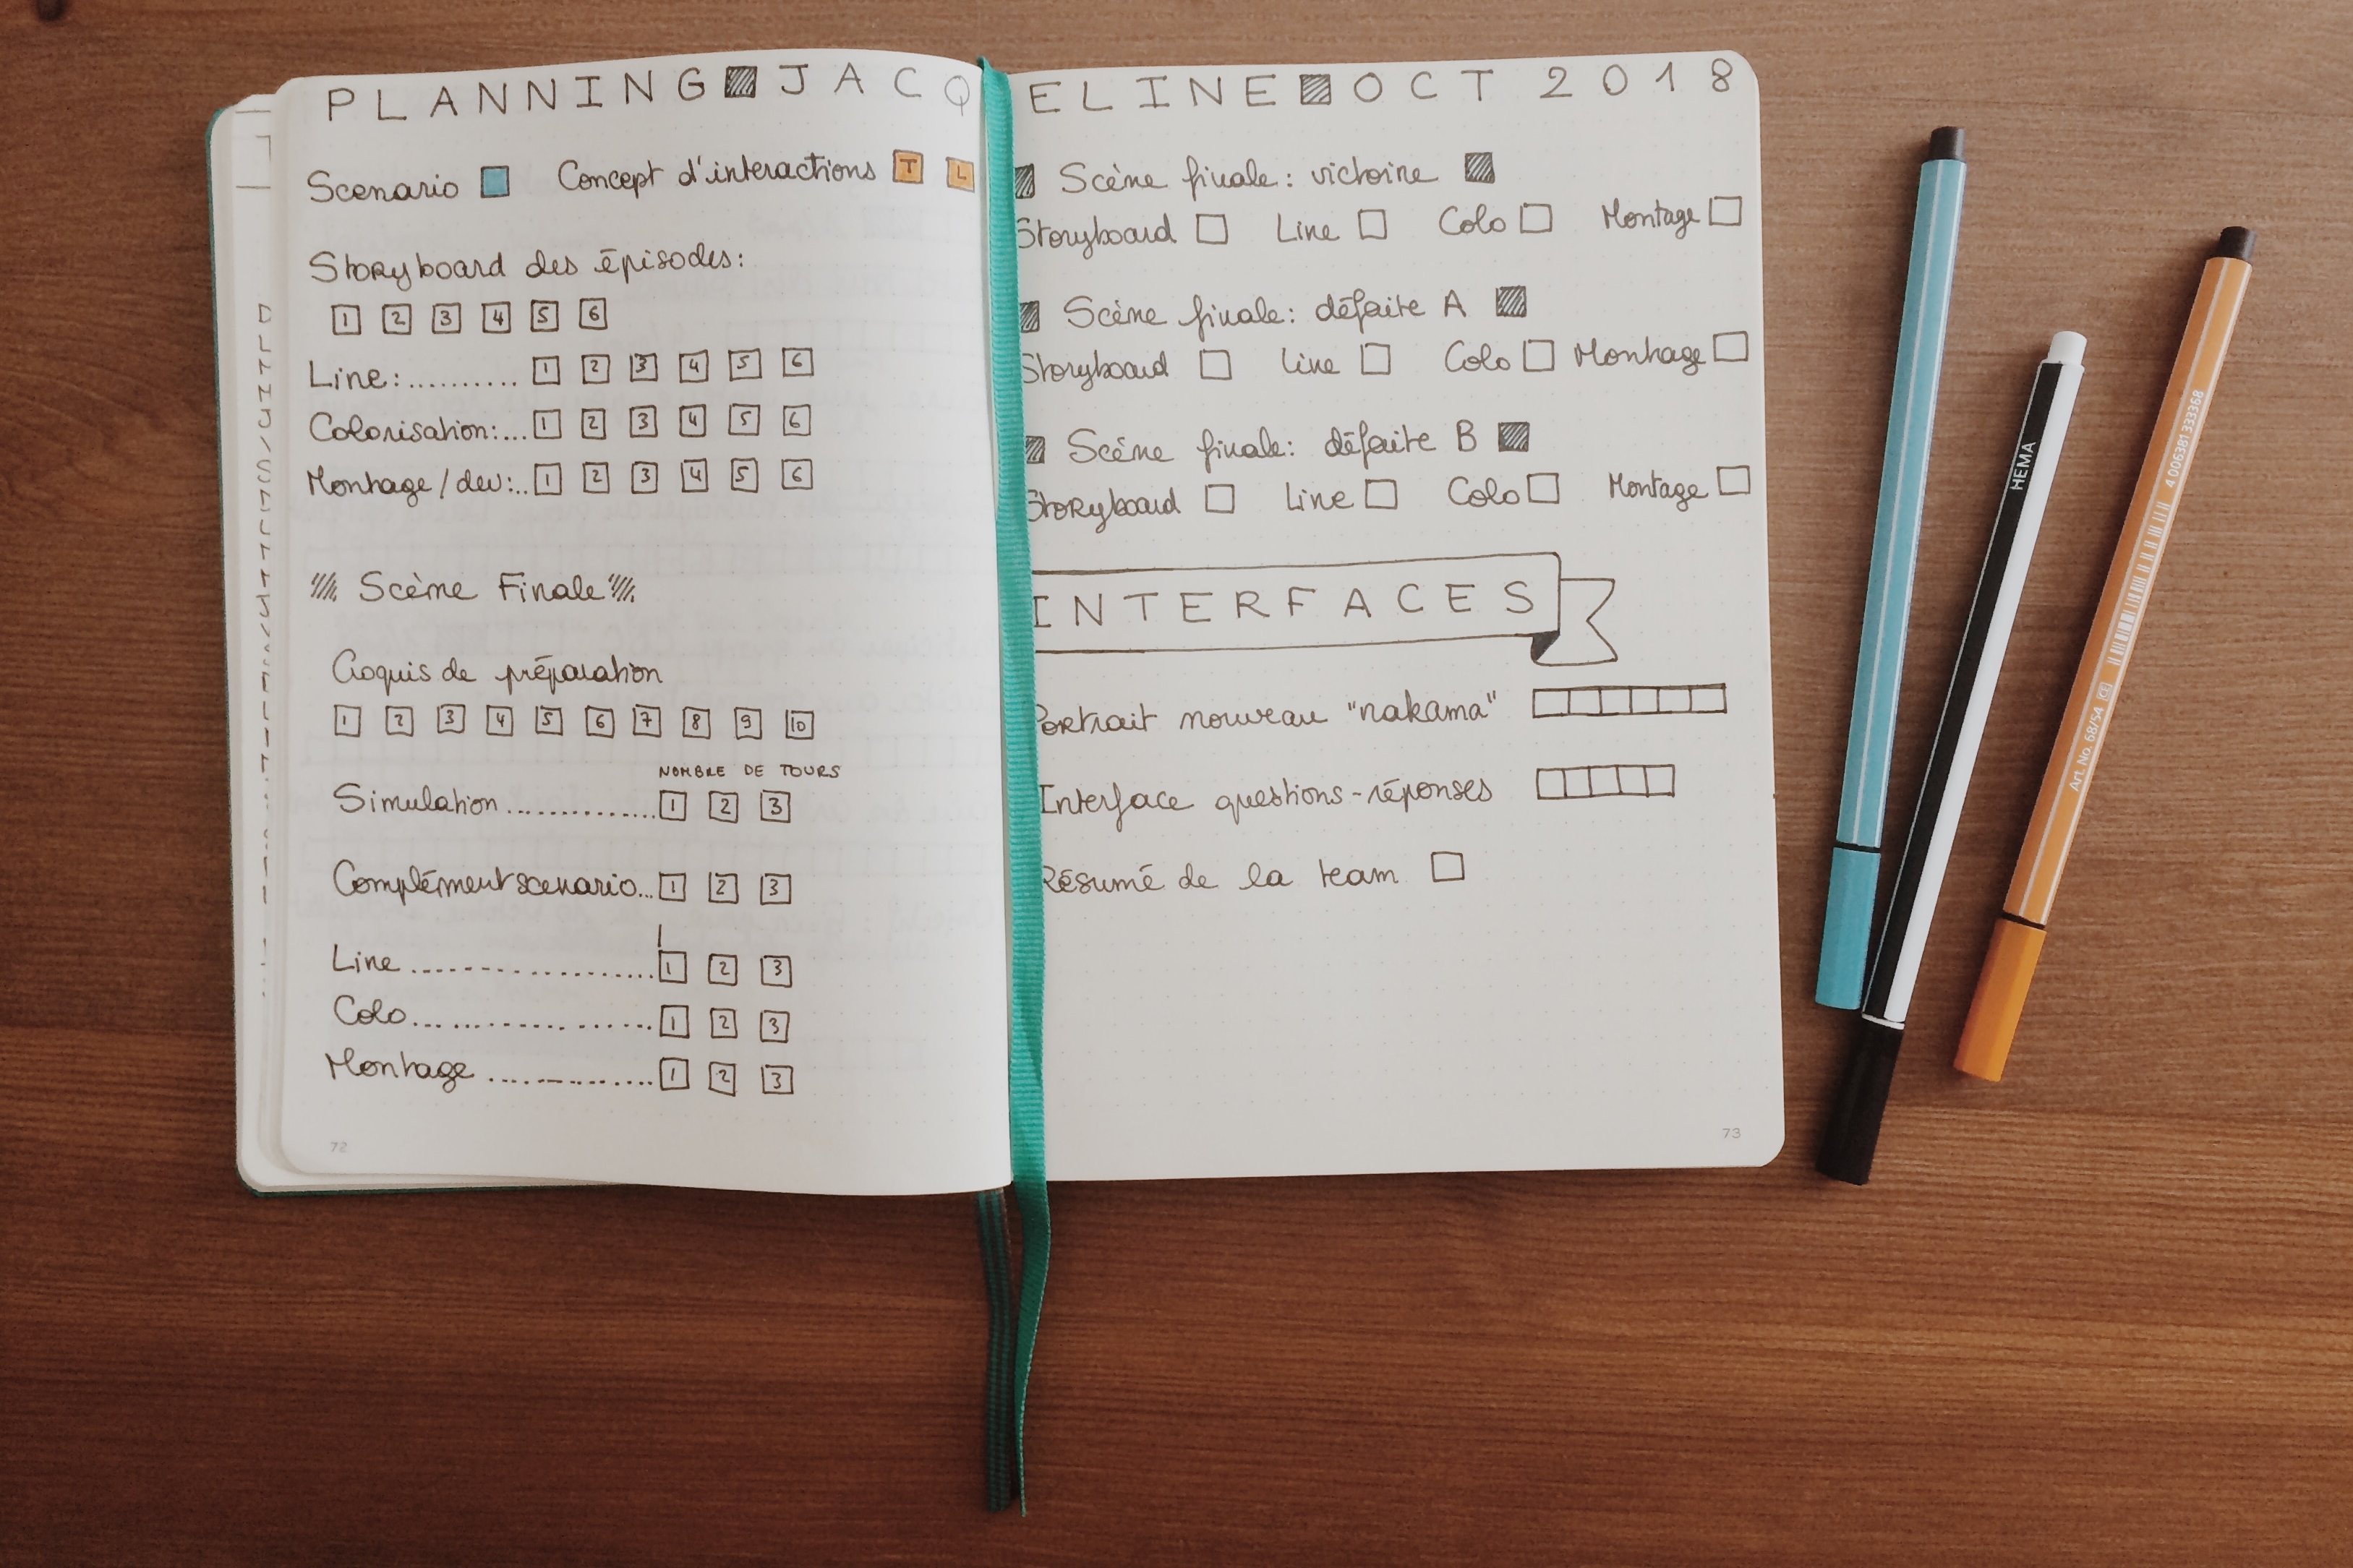 PLANNING JACQ
Scenario Concept d'interactions T L
Storyboard des épisodes:
1 2 3 4 5 6
Line:.......... 1 2 3 4 5 6
Colorisation:... 1 2 3 4 5 6
Montage/dev:.. 1 2 3 4 5 6
Scène Finale
Croquis de préparation
1 2 3 4 5 6 7 8 9 10
NOMBRE DE TOURS
Simulation.............. 1 2 3
Complément scenario... 1 2 3
Line........................ 1 2 3
Colo........................ 1 2 3
Montage ................ 1 2 3
72
ELINE OCT 2018
Scène finale: victoire
Storyboard Line Colo Montage
Scène finale: défaite A
Storyboard Line Colo Montage
Scène finale: défaite B
Storyboard Line Colo Montage
INTERFACES
Portrait nouveau "nakama"
Interface questions-réponses
Résumé de la team
73
HEMA
Art. No. 68/54 4006381333368